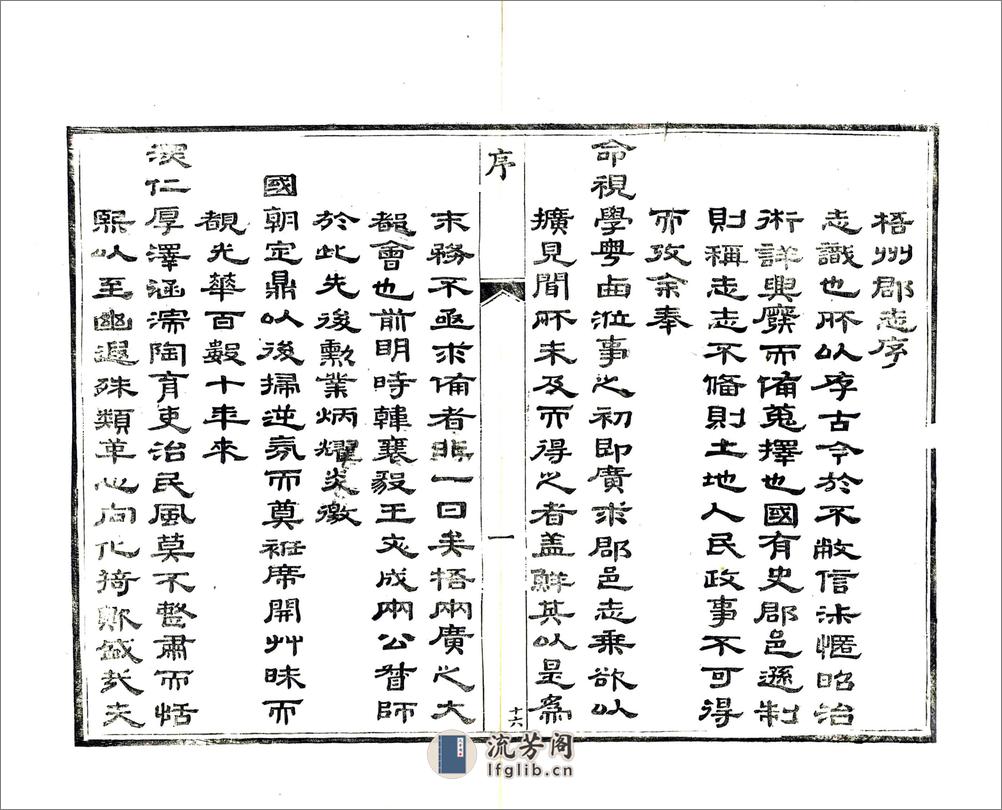 梧州郡志序
志識也所以存古今於不敝信淑慝昭治
術詳興廢而備蒐擇也國有史郡邑遜制
則稱志志不備則土地人民政事不可得
而攷余奉
命視學粵西涖事之初即廣求郡邑志乘欲以
擴見聞所未及而得之者蓋鮮其以是為
序
一
十六
末務不亟求備者非一日矣梧兩廣之大
都會也前明時韓襄毅王文成兩公督師
於此先後勳業炳耀炎徼
國朝定鼎以後掃逆氛而奠袵席開艸昧而
覩光華百數十年來
深仁厚澤涵濡陶育吏治民風莫不整肅而恬
熙以至幽遐殊類革心向化猗歟盛哉夫
流芳阁
lfglib.cn